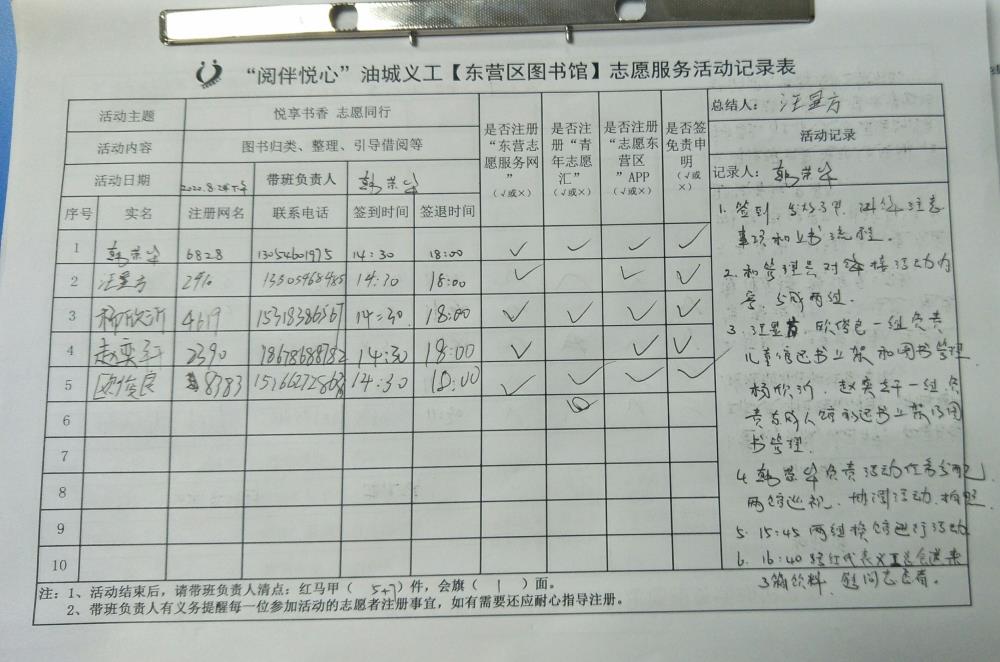 “阅伴悦心”油城义工【东营区图书馆】志愿服务活动记录表
活动主题 悦享书香 志愿同行
活动内容 图书归类、整理、引导借阅等
活动日期 2022.8.28下午 带班负责人 韩荣华
是否注册“东营志愿服务网”（√或×）
是否注册“青年志愿汇”（√或×）
是否注册“志愿东营区”APP（√或×）
是否签免责申明（√或×）
总结人：汪显方
活动记录
记录人：韩荣华
序号 实名 注册网名 联系电话 签到时间 签退时间
1 韩荣华 6828 13054601975 14:30 18:00 √ √ √ √
2 汪显方 14:30 18:00 √ √ √
3 杨欣沂 4619 14:30 18:00 √ √ √ √
4 赵奕 2390 18678688782 14:30 18:00 √ √ √
5 欧俊良 8383 14:30 18:00 √ √ √ √
6
7
8
9
10
1. 签到、注意
事项和上书流程。
2. 和管理员对接活动内
容，分成两组.
3. 一组负责
儿童馆还书上架和图书管理
杨欣沂、赵奕 一组负
责成人馆还书上架及图
书管理.
4. 韩荣华负责活动任务分配，
两馆巡视、协调活动、拍照.
5. 15:45 两组换馆进行活动
6. 16:40
3箱饮料，慰问志愿者。
注：1、活动结束后，请带班负责人清点：红马甲（5+7）件，会旗（1）面。
2、带班负责人有义务提醒每一位参加活动的志愿者注册事宜，如有需要还应耐心指导注册。